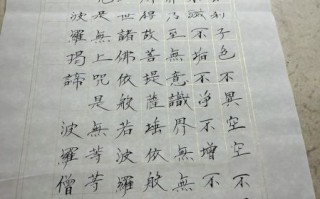 利子色不異空空不
滅不垢不淨不增不
乃至無意識界無無
得故菩提薩埵依般
世諸佛依般若波羅
是無上咒是無等等
波羅諦波羅僧